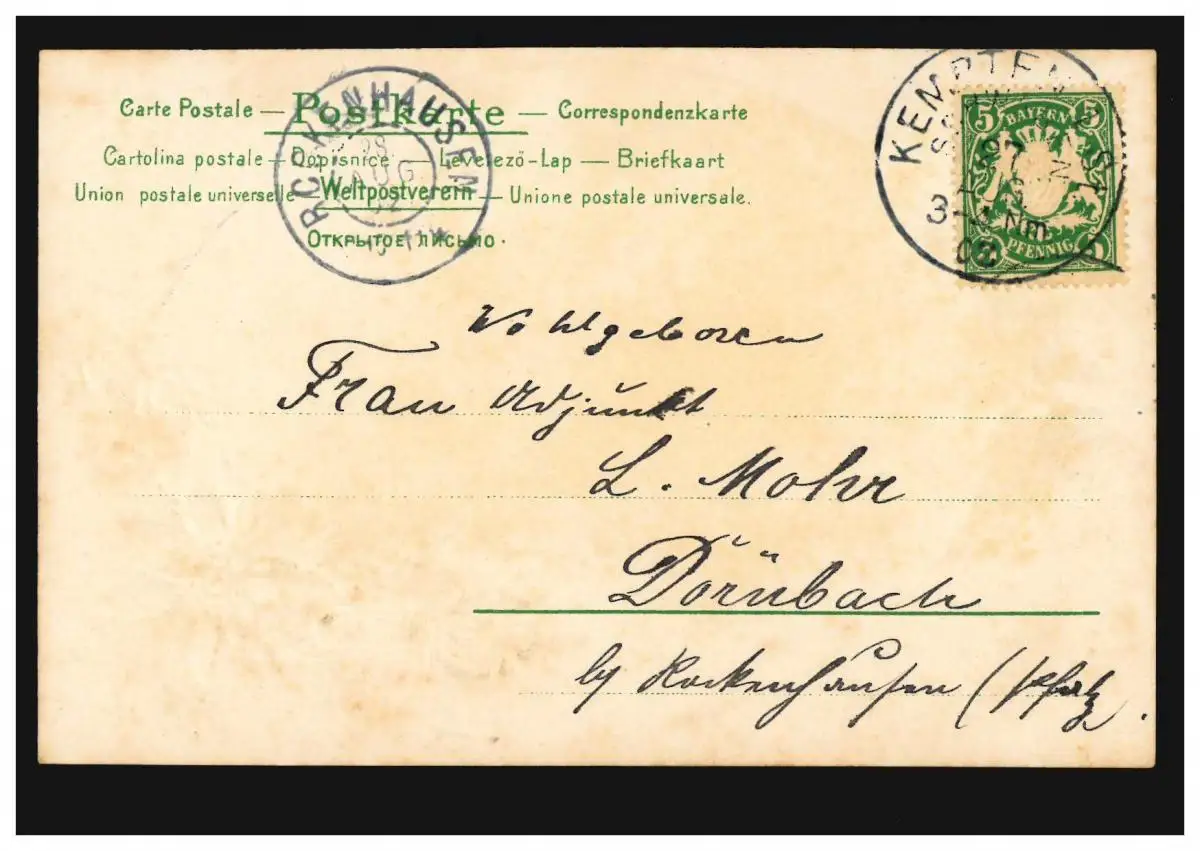 Carte Postale — Postkarte — Correspondenzkarte
Cartolina postale — Dopisnice — Levelező-Lap — Briefkaart
Union postale universelle — Weltpostverein — Unione postale universale.
Открытое письмо.
ROCKENHAUSEN
28
AUG
02
KEMPTEN
3-4 Nm
02
5 5
BAYERN
PFENNIG
5
Wohlgeboren
Frau Adjunkt
L. Mohr
Dörnbach
by Rockenhausen (Pfalz.